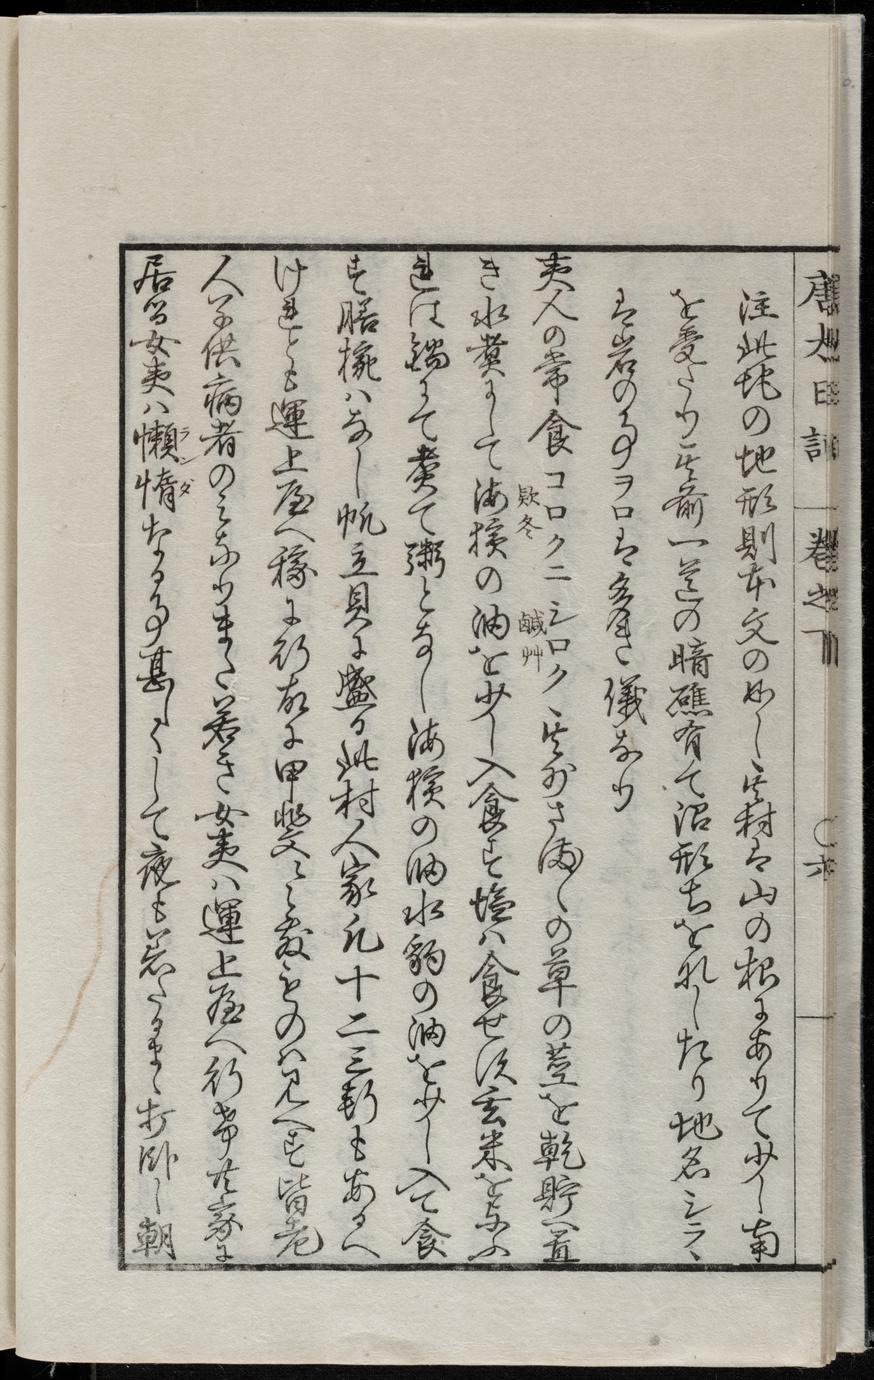 唐太日記 卷之下 〇六
注此地の地形則本文の如し其村は山の根にありて少し南
を受たり其前一道の暗礁有て沼形ちを為したり地名シラヽ
は岩の事ヲロは多き儀なり
夷人の常食コロクニ欵冬シロク鹹艸其外さま〴〵の草の莖を乾貯へ置
き水煮にして海獱の油を少し入食す塩は食せす玄米を与ふ
れは鍋にて煮て粥となし海獱の油水豹の油を少し入て食
す膳椀はなし帆立貝に盛る此村人家凡十二三軒もあるへ
けれとも運上屋へ稼に行故に甲斐〳〵敷ものは見へす皆老
人子供病者のみなりまた若き女夷は運上屋へ行常其家に
居る女夷は懶惰ランダなる事甚しくして夜も着たるまゝ打臥し朝